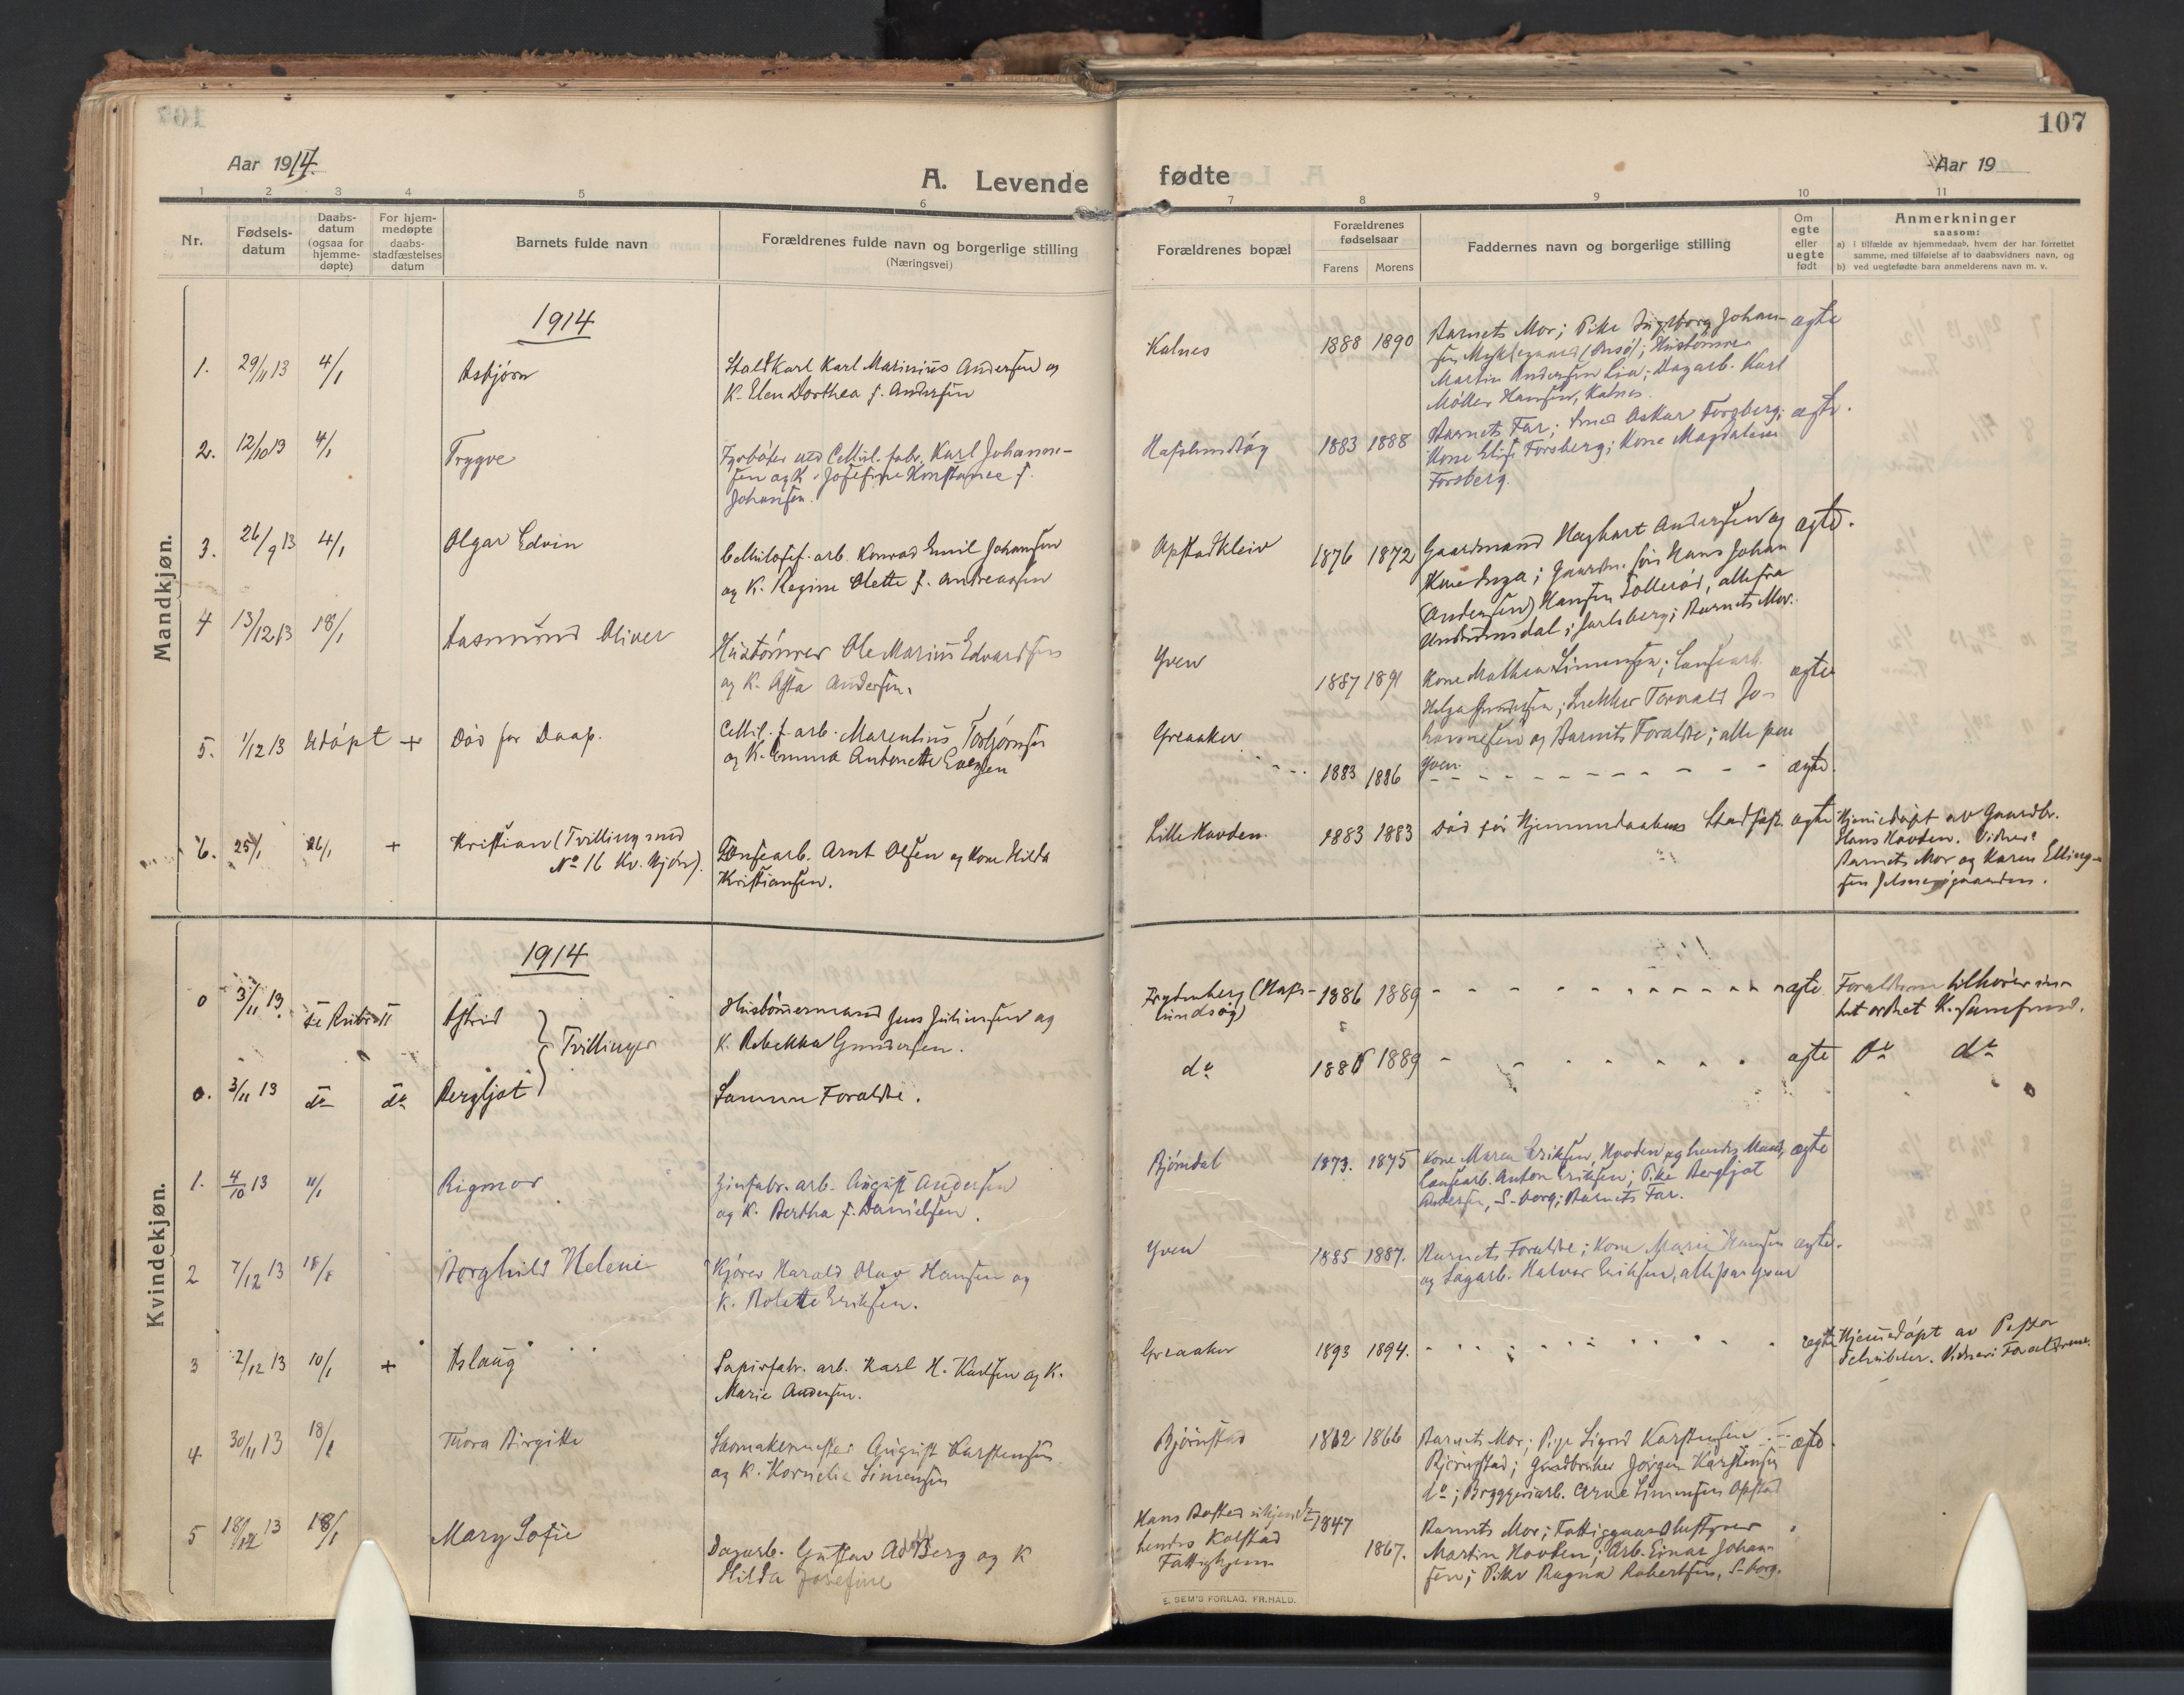 107
Aar 1914.
A. Levende
fødte
Aar 19
1 2 3 4 5 6 7 8 9 10 11
Nr.
Fødsels-
datum
Daabs-
datum
(ogsaa for
hjemme-
døpte)
For hjem-
medøpte
daabs-
stadfæstelses
datum
Barnets fulde navn
Forældrenes fulde navn og borgerlige stilling
(Næringsvei)
Forældrenes bopæl
Forældrenes
fødselsaar
Farens Morens
Faddernes navn og borgerlige stilling
Om
egte
eller
uegte
født
Anmerkninger
saasom:
a) i tilfælde av hjemmedaab, hvem der har forrettet
samme, med tilføielse af to daabsvidners navn, og
b) ved uegtefødte barn anmelderens navn m. v.
Mandkjøn.
1914
1. 29/11 13 4/1 Asbjørn
Staldkarl Karl Marinius Andersen og
K. Elen Dorthea f. Andersen
Kalnes 1888 1890
Barnets Mor; Pike Ingeborg Johan-
sen
Martin Andersen Lia; Dagarb. Karl
Møller Hansen, Kalnes.
egte
2. 12/10 13 4/1 Trygve
Fyrbøter ved Cellul. fabr. Karl Johanne-
sen og K. Josefine Konstance f.
Johansen.
Hafslundsøy 1883 1888
Barnets Far; Oskar Forsberg;
Kone Elise Forsberg; Kone Magdalene
Forsberg.
egte.
3. 26/9 13 4/1 Olgar Edvin
Cellulosef. arb. Konrad Emil Johansen
og K. Regine Olette f. Andreassen
Opstadkleiv 1876 1872
Gaardmand Haghart Andersen og
Kone Inga; Gaardm. søn Hans Johan
(Andersen) Hansen Tollerød, alle fra
Undrumsdal i Jarlsberg; Barnets Mor.
egte.
4 13/12 13 18/1 Aasmund Oliver
Hustømrer Ole Marius Edvardsen
og K. Asta Andersen.
Yven 1887 1891
Kone Mathea Simensen; Lansearb.
Helga; Snekker Torvald Jo-
hannesen og Barnets Foraldre; alle paa
Yven.
egte
5. 1/12 13 Udøpt + Død før Daap.
Cellul. f. arb. Marentius Torbjørnsen
og K. Emma Antonette Evensen
Greaaker 1883 1886
egte.
6. 25/1 26/1 + Kristian (Tvilling med
No 16 Kv. kjøn).
Lønsearb. Arnt Olsen og Kone Hilda
Kristiansen.
Lille Hovden. 1883 1883
Død før Hjemmedaabens Stadfæst.
egte
Hjemmedøpt av Gaardbr.
Hans Hovden. Vidner:
Barnets Mor og Karen Elling-
sen
Kvindekjøn.
1914
0 3/11 13. Astrid } Tvillinger
Hustømermand Jens Juliussen og
K. Rebekka Gundersen.
Frydenberg (Hafs-
lundsøy) 1886 1889
egte
Foraldrene tilhører
K. samfund.
0. 3/11 13 do do Bergljot
Samme Foraldre.
do 1886 1889
egte
Do do
1. 4/10 13 11/1 Rigmor
Zinfabr. arb. August Andersen
og K. Bertha f. Danielsen.
Bjørndal 1873. 1875
Kone Maren Eriksen, Hovden og hendes Mand,
Lansearb. Anton Eriksen; Pike Bergljot
Andersen, S-borg; Barnets Far.
egte
2 7/12 13 18/1 Borghild Helene
Kjører Harald Olav Hansen og
K. Bolette Eriksen.
Yven 1885 1887.
Barnets Foraldre; Kone Marie Hansen
og Sagarb. Halvor Eriksen, alle paa Yven
egte.
3 2/12 13 10/1 + Aslaug
Papirfabr. arb. Karl H. Karlsen og K.
Marie Andersen.
Greaaker 1893 1894.
egte
Hjemmedøpt av Pastor
Schübeler. Vidner: Foraldrene.
4 30/11 13 18/1 Thora Birgitte
Skomakermester August Karstensen
og K. Kornelia Simensen
Bjørnstad 1862 1866
Barnets Mor; Pige Sigrid Karstensen
Bjørnstad; Gaardbruker Jørgen Karstensen
do; Bryggeriarb. Arne Simensen Opstad
egte.
5 18/12 13 18/1 Mary Sofie
Dagarb. Gustav Adolf Berg og K
Hilda Josefine
Hans Bosted ukjendt,
hendes Kalstad
Fattighjem
1847 1867.
Barnets Mor; Fattiggaardbestyrer
Martin Hovden; Arb. Einar Johan-
sen; Pike Ragna Robertsen, S-borg.
E. SEM'S FORLAG, FR.HALD.